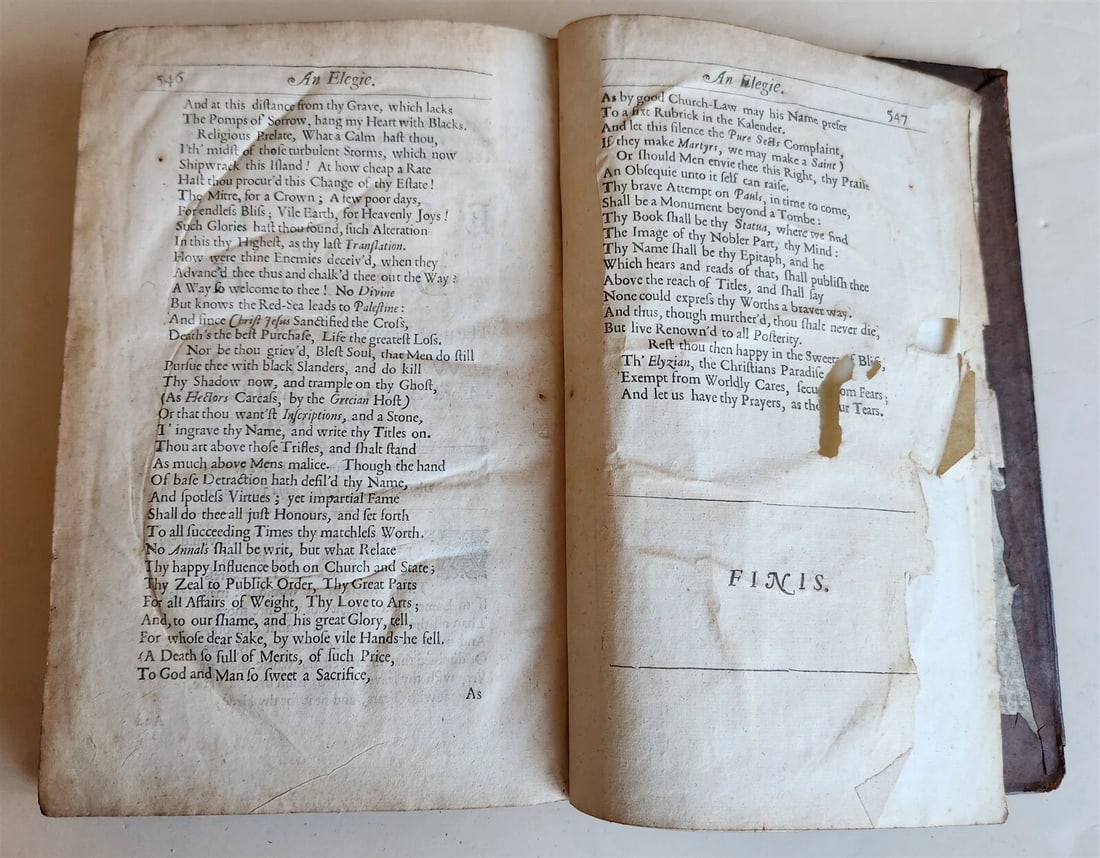 546
An Elegie.
And at this diſtance from thy Grave, which lacks
The Pomps of Sorrow, hang my Heart with Blacks.
Religious Prelate, What a Calm haſt thou,
I'th' midſt of thoſe turbulent Storms, which now
Shipwrack this Iſland! At how cheap a Rate
Haſt thou procur'd this Change of thy Eſtate!
The Mitre, for a Crown; A few poor days,
For endleſs Bliſs; Vile Earth, for Heavenly Joys!
Such Glories haſt thou found, ſuch Alteration
In this thy Higheſt, as thy laſt Tranſlation.
How were thine Enemies deceiv'd, when they
Advanc'd thee thus and chalk'd thee out the Way?
A Way ſo welcome to thee! No Divine
But knows the Red-Sea leads to Paleſtine:
And ſince Chriſt Jeſus Sanctified the Croſs,
Death's the beſt Purchaſe, Life the greateſt Loſs.
Nor be thou griev'd, Bleſt Soul, that Men do ſtill
Purſue thee with black Slanders, and do kill
Thy Shadow now, and trample on thy Ghoſt,
(As Hectors Carcaſs, by the Grecian Hoſt)
Or that thou want'ſt Inſcriptions, and a Stone,
T' ingrave thy Name, and write thy Titles on.
Thou art above thoſe Trifles, and ſhalt ſtand
As much above Mens malice. Though the hand
Of baſe Detraction hath defil'd thy Name,
And ſpotleſs Virtues; yet impartial Fame
Shall do thee all juſt Honours, and ſet forth
To all ſucceeding Times thy matchleſs Worth.
No Annals ſhall be writ, but what Relate
Thy happy Influence both on Church and State;
Thy Zeal to Publick Order, Thy Great Parts
For all Affairs of Weight, Thy Love to Arts;
And, to our ſhame, and his great Glory, tell,
For whoſe dear Sake, by whoſe vile Hands he fell.
(A Death ſo full of Merits, of ſuch Price,
To God and Man ſo ſweet a Sacrifice,
As
An Elegie.
547
As by good Church-Law may his Name prefer
To a fixt Rubrick in the Kalender.
And let this ſilence the Pure Sects Complaint,
If they make Martyrs, we may make a Saint;
Or ſhould Men envie thee this Right, thy Praiſe
An Obſequie unto it ſelf can raiſe.
Thy brave Attempt on Pauls, in time to come,
Shall be a Monument beyond a Tombe:
Thy Book ſhall be thy Statua, where we find
The Image of thy Nobler Part, thy Mind:
Thy Name ſhall be thy Epitaph, and he
Which hears and reads of that, ſhall publiſh thee
Above the reach of Titles, and ſhall ſay
None could expreſs thy Worths a braver way.
And thus, though murther'd, thou ſhalt never die,
But live Renown'd to all Poſterity.
Reſt thou then happy in the Sweets of Bliſs,
Th' Elyzian, the Chriſtians Paradiſe
Exempt from Worldly Cares, ſecu om Fears;
And let us have thy Prayers, as th ur Tears.
FINIS.